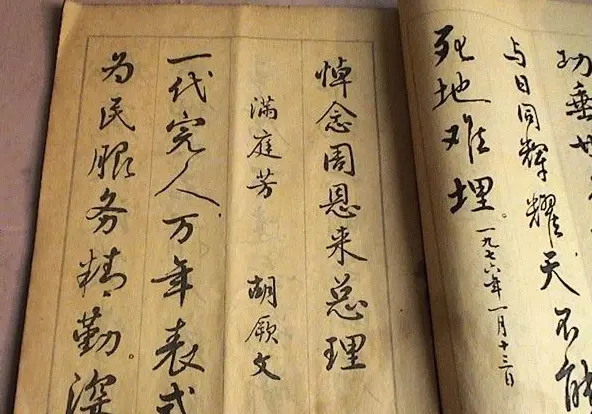 功垂
与日同辉耀天不能
死地难埋。一九七六年一月十三日
悼念周恩来总理
满庭芳 胡厥文
一代完人万年表式
为民服务精勤。深